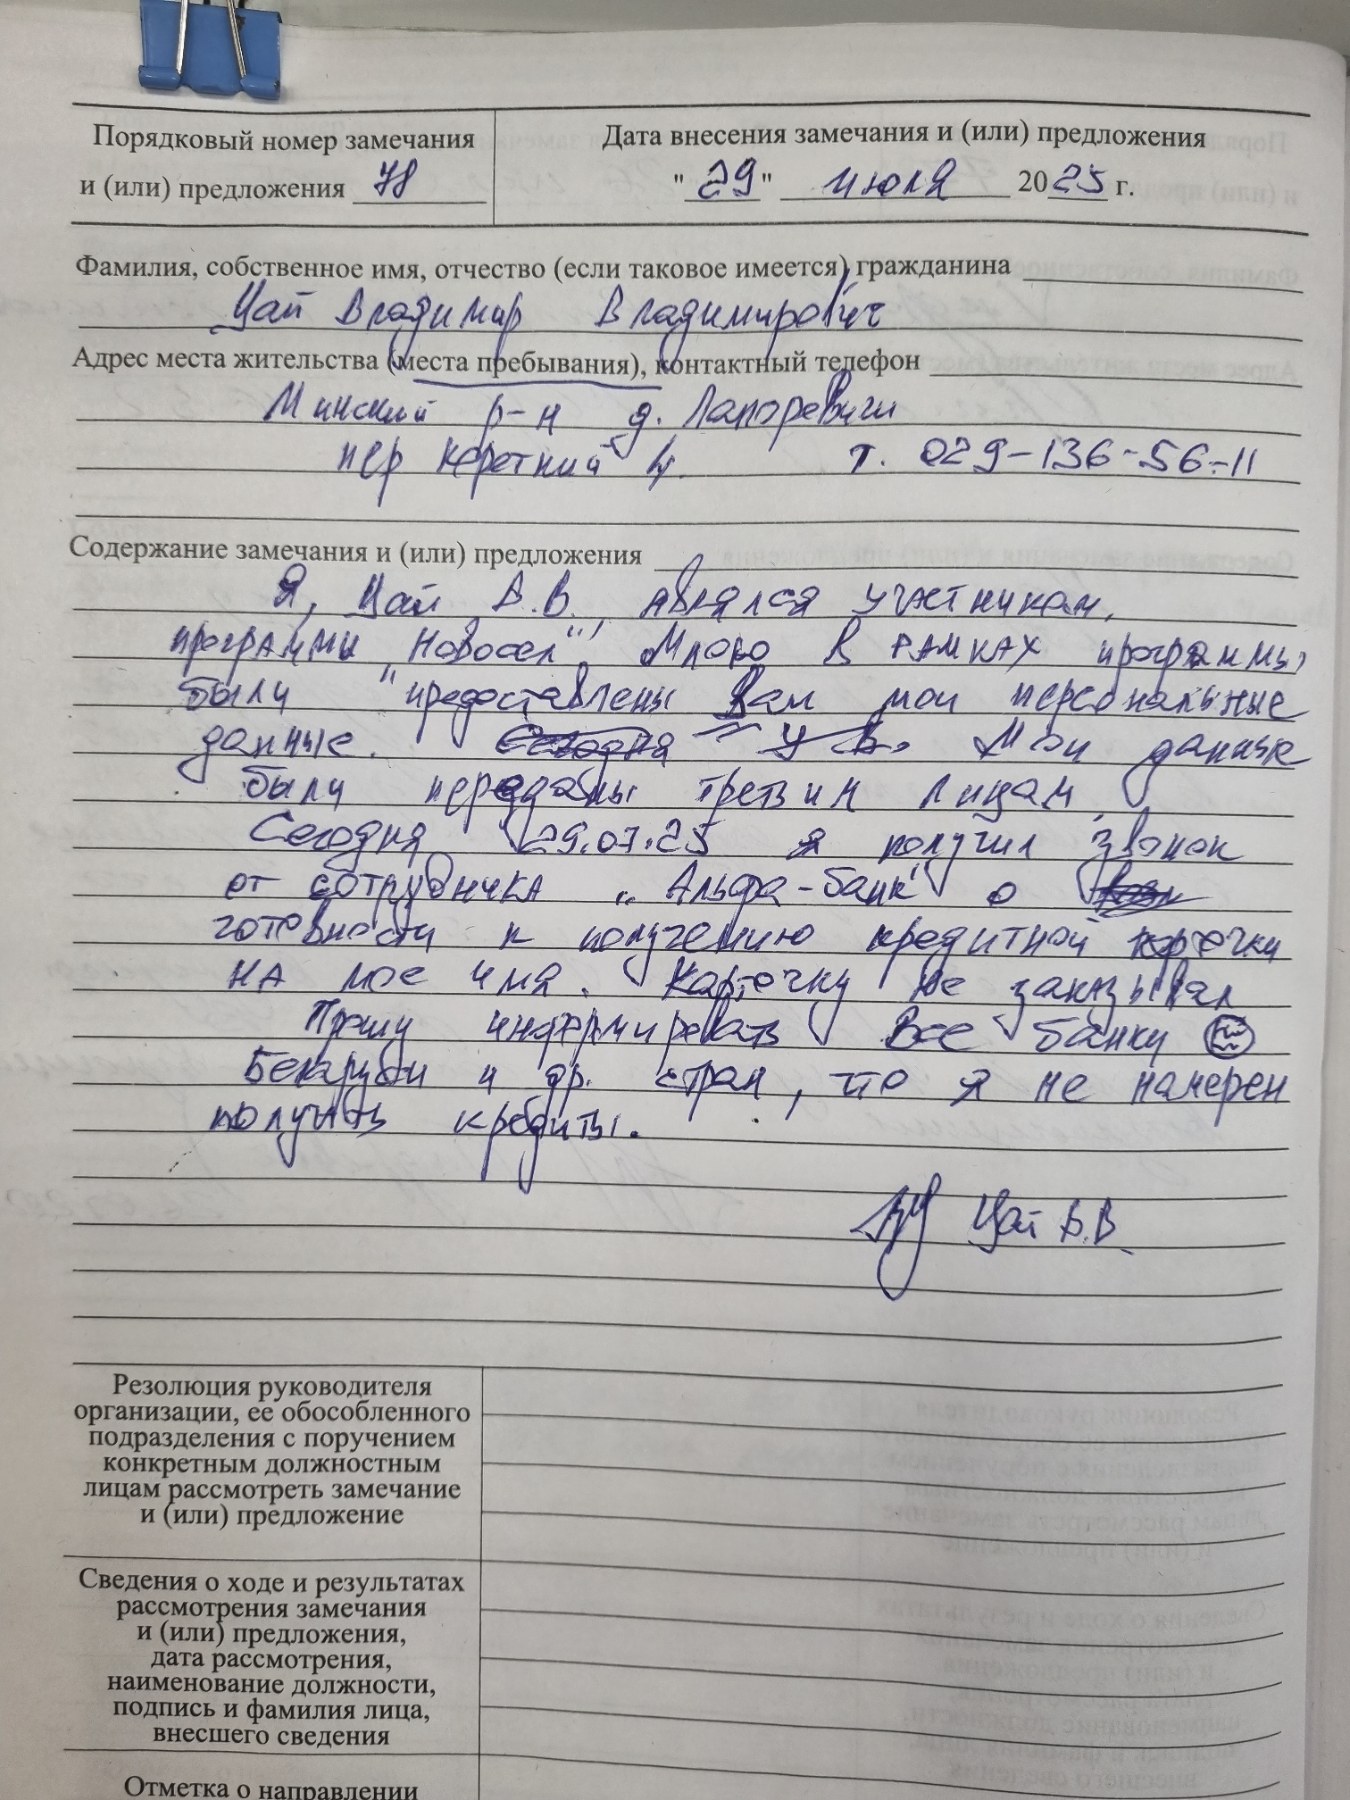 Порядковый номер замечания
и (или) предложения 78
Дата внесения замечания и (или) предложения
"29" июля 2025 г.
Фамилия, собственное имя, отчество (если таковое имеется) гражданина
Цай Владимир Владимирович
Адрес места жительства (места пребывания), контактный телефон
Минский р-н д. Лапоревичи
пер Короткий 4. т. 029-136-56-11
Содержание замечания и (или) предложения
Я, Цай В.В. являлся участникам,
программы "Новосел". Мною в рамках программы
были предоставлены Вам мои персональные
данные. Мои данные
были переданы третьим лицам.
Сегодня 29.07.25 я получил звонок
от сотрудника "Альфа-банк" о
готовности к получению кредитной карточки
на мое имя. Карточку не заказывал
Прошу информировать все банки
Беларуси и др. стран, что я не намерен
получать кредиты.
Цай В.В.
Резолюция руководителя
организации, ее обособленного
подразделения с поручением
конкретным должностным
лицам рассмотреть замечание
и (или) предложение
Сведения о ходе и результатах
рассмотрения замечания
и (или) предложения,
дата рассмотрения,
наименование должности,
подпись и фамилия лица,
внесшего сведения
Отметка о направлении